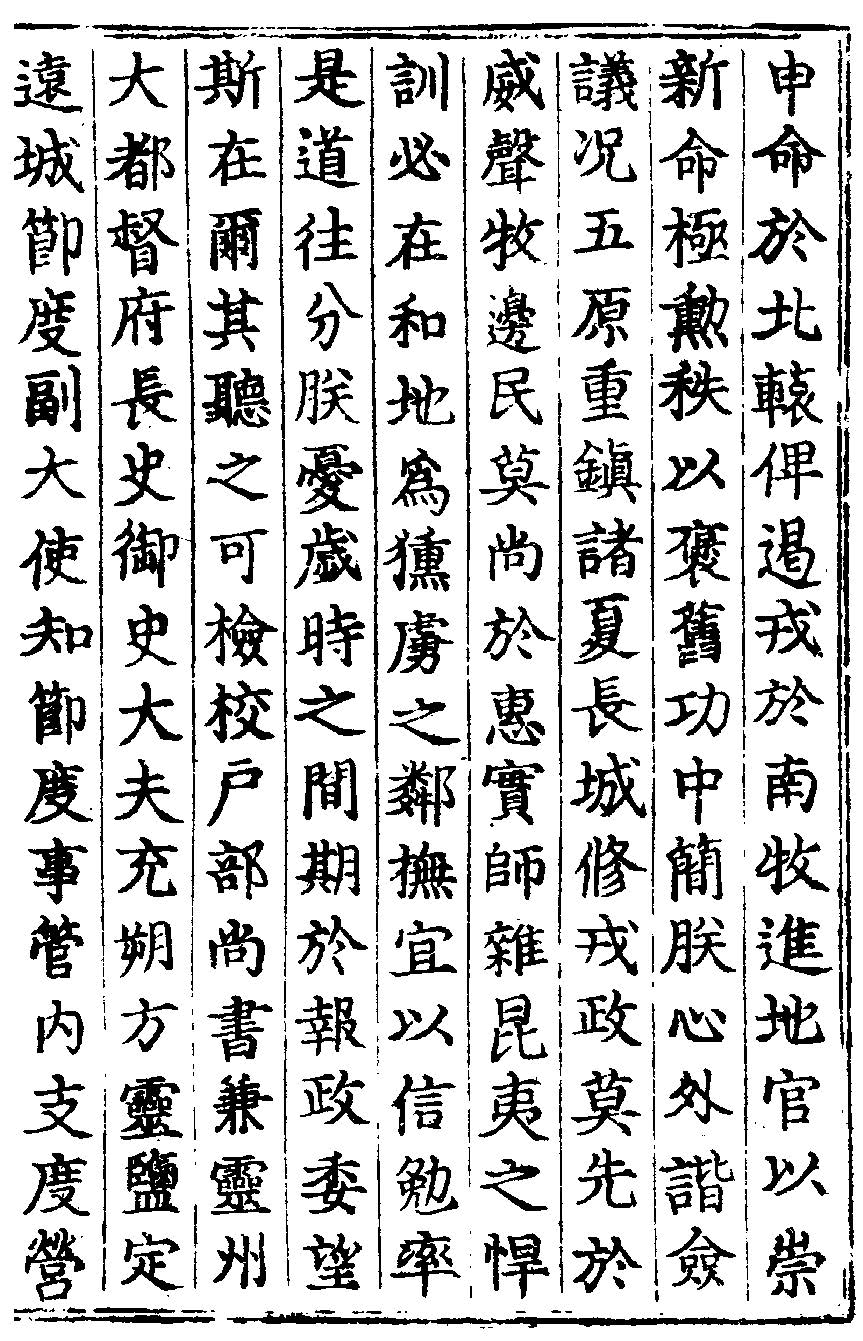 申命於北轅俾遏戎於南牧進地官以崇
新命極勲秩以褒舊功中簡朕心外諧僉
議况五原重鎮諸夏長城修戎政莫先於
威聲牧邊民莫尚於惠實師雜昆夷之悍
訓必在和地為獯虜之鄰撫宜以信勉率
是道往分朕憂歲時之間期於報政委望
斯在爾其聽之可檢校戶部尚書兼靈州
大都督府長史御史大夫充朔方靈鹽定
遠城節度副大使知節度事管內支度營